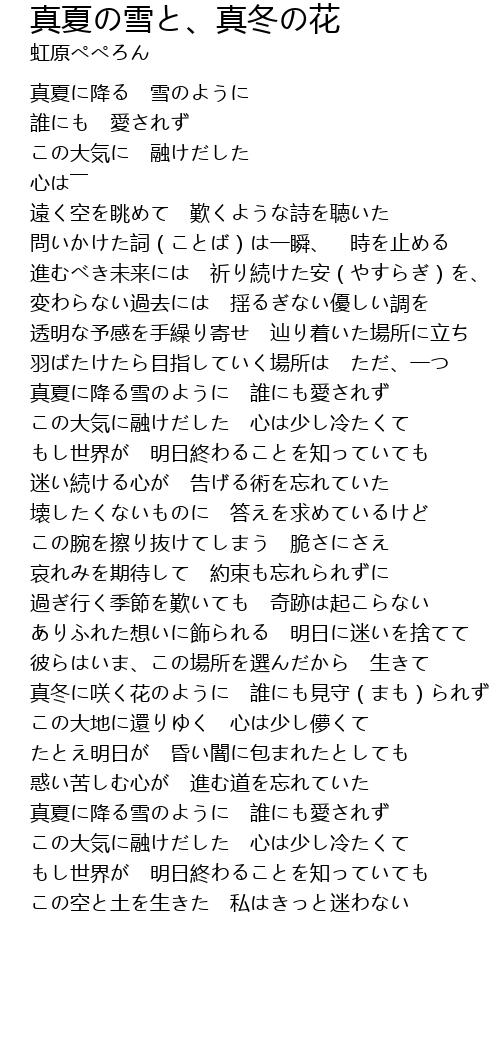 真夏の雪と、真冬の花
虹原ぺぺろん
真夏に降る　雪のように
誰にも　愛されず
この大気に　融けだした
心は￣
遠く空を眺めて　歎くような詩を聴いた
問いかけた詞 ( ことば ) は一瞬、　時を止める
進むべき未来には　祈り続けた安 ( やすらぎ ) を、
変わらない過去には　揺るぎない優しい調を
透明な予感を手繰り寄せ　辿り着いた場所に立ち
羽ばたけたら目指していく場所は　ただ、一つ
真夏に降る雪のように　誰にも愛されず
この大気に融けだした　心は少し冷たくて
もし世界が　明日終わることを知っていても
迷い続ける心が　告げる術を忘れていた
壊したくないものに　答えを求めているけど
この腕を擦り抜けてしまう　脆さにさえ
哀れみを期待して　約束も忘れられずに
過ぎ行く季節を歎いても　奇跡は起こらない
ありふれた想いに飾られる　明日に迷いを捨てて
彼らはいま、この場所を選んだから　生きて
真冬に咲く花のように　誰にも見守 ( まも ) られず
この大地に還りゆく　心は少し儚くて
たとえ明日が　昏い闇に包まれたとしても
惑い苦しむ心が　進む道を忘れていた
真夏に降る雪のように　誰にも愛されず
この大気に融けだした　心は少し冷たくて
もし世界が　明日終わることを知っていても
この空と土を生きた　私はきっと迷わない